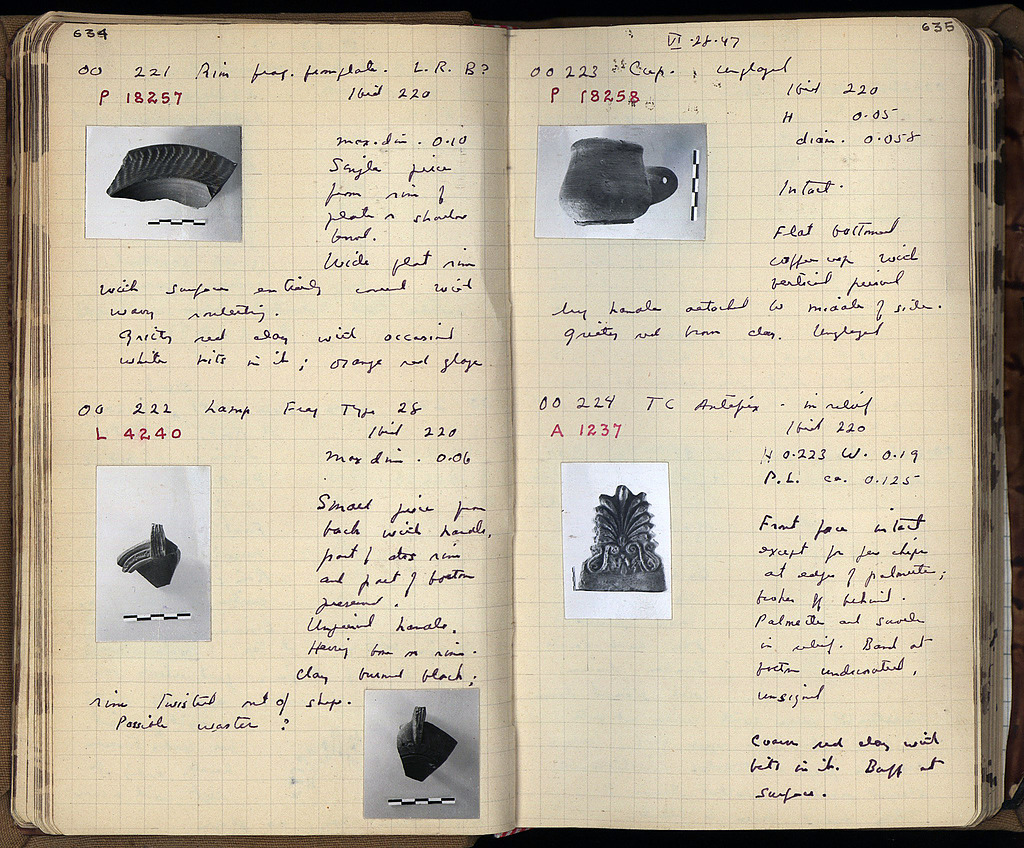 634
OO 221 Rim frag. from plate. L. R. B?
P 18257
Ibid 220
max. dim. 0.10
Single piece
from rim of
plate or shallow
bowl.
Wide flat rim
with surface entirely covered with
wavy rouletting.
Gritty red clay with occasional
white bits in it; orange red glaze
OO 222 Lamp Frag Type 28
L 4240
Ibid 220
Max dim. 0.06
Small piece from
back with handle,
part of disc rim
and part of bottom
preserved.
Unpierced handle.
Herring bone on rim.
Clay burned black;
rim twisted out of shape.
Possible waster?
635
VI · 28 · 47
OO 223 Cup. unglazed
P 18258
Ibid 220
H 0.05
diam. 0.058
Intact.
Flat bottomed
cup with
vertical pierced
lug handle attached to middle of side.
Gritty red brown clay. Unglazed
OO 224 TC Antefix - in relief
A 1237
Ibid 220
H 0.223 W. 0.19
P.L. ca. 0.125
Front face intact
except for few chips
at edges of palmette;
broken off behind.
Palmette and
in relief. Band at
bottom undecorated,
unsigned
Coarse red clay with
bits in it. Buff at
surface.